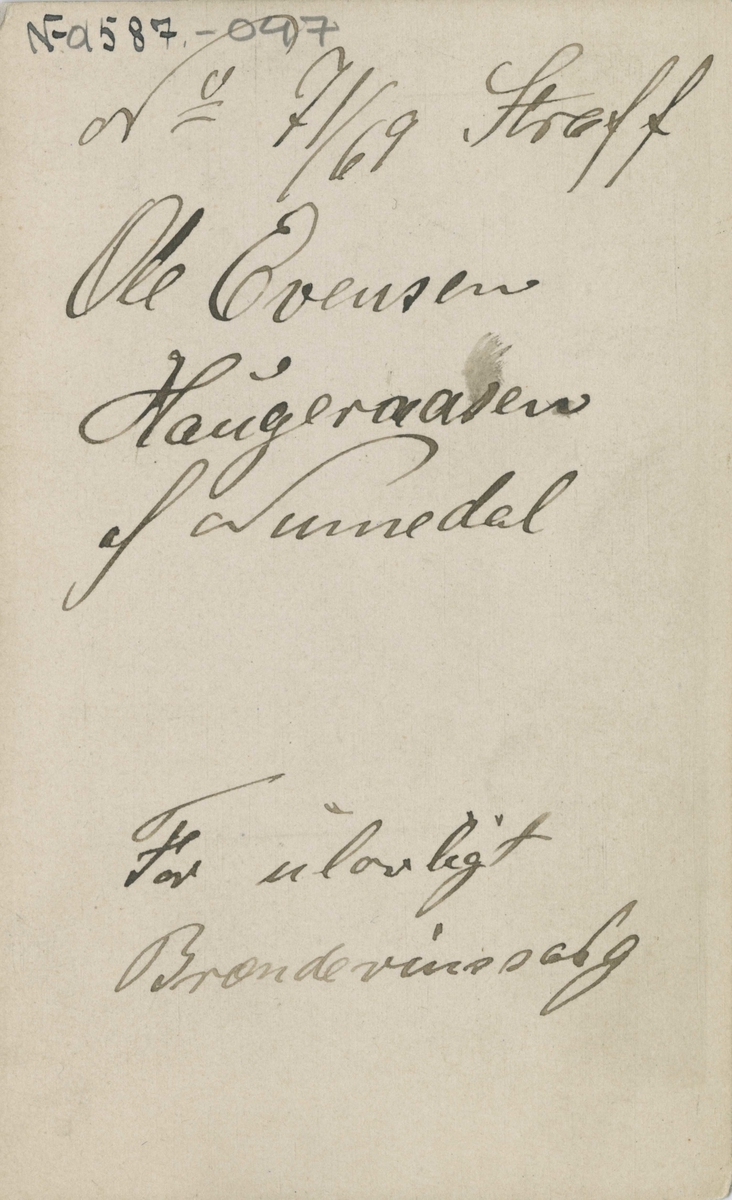 N-a587.-047
No 71/69 Straff
Ole Evensen
Haugeraasen
af Numedal
For ulovligt
Brændevinssalg